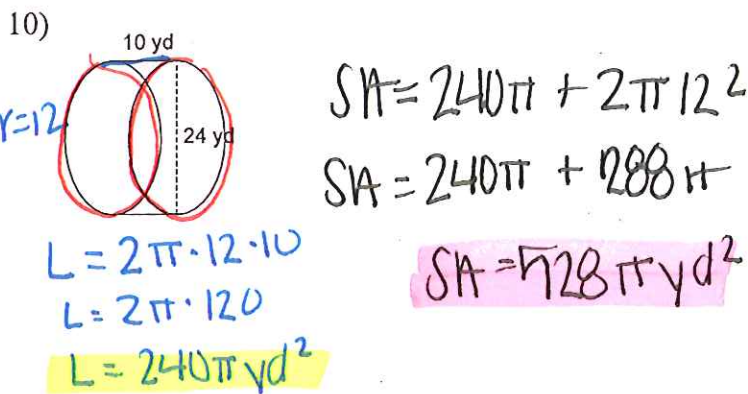 10)
10 yd
r=12
24 yd
L = 2π·12·10
L = 2π·120
L = 240π yd²
SA = 240π + 2π12²
SA = 240π + 288π
SA = 528π yd²